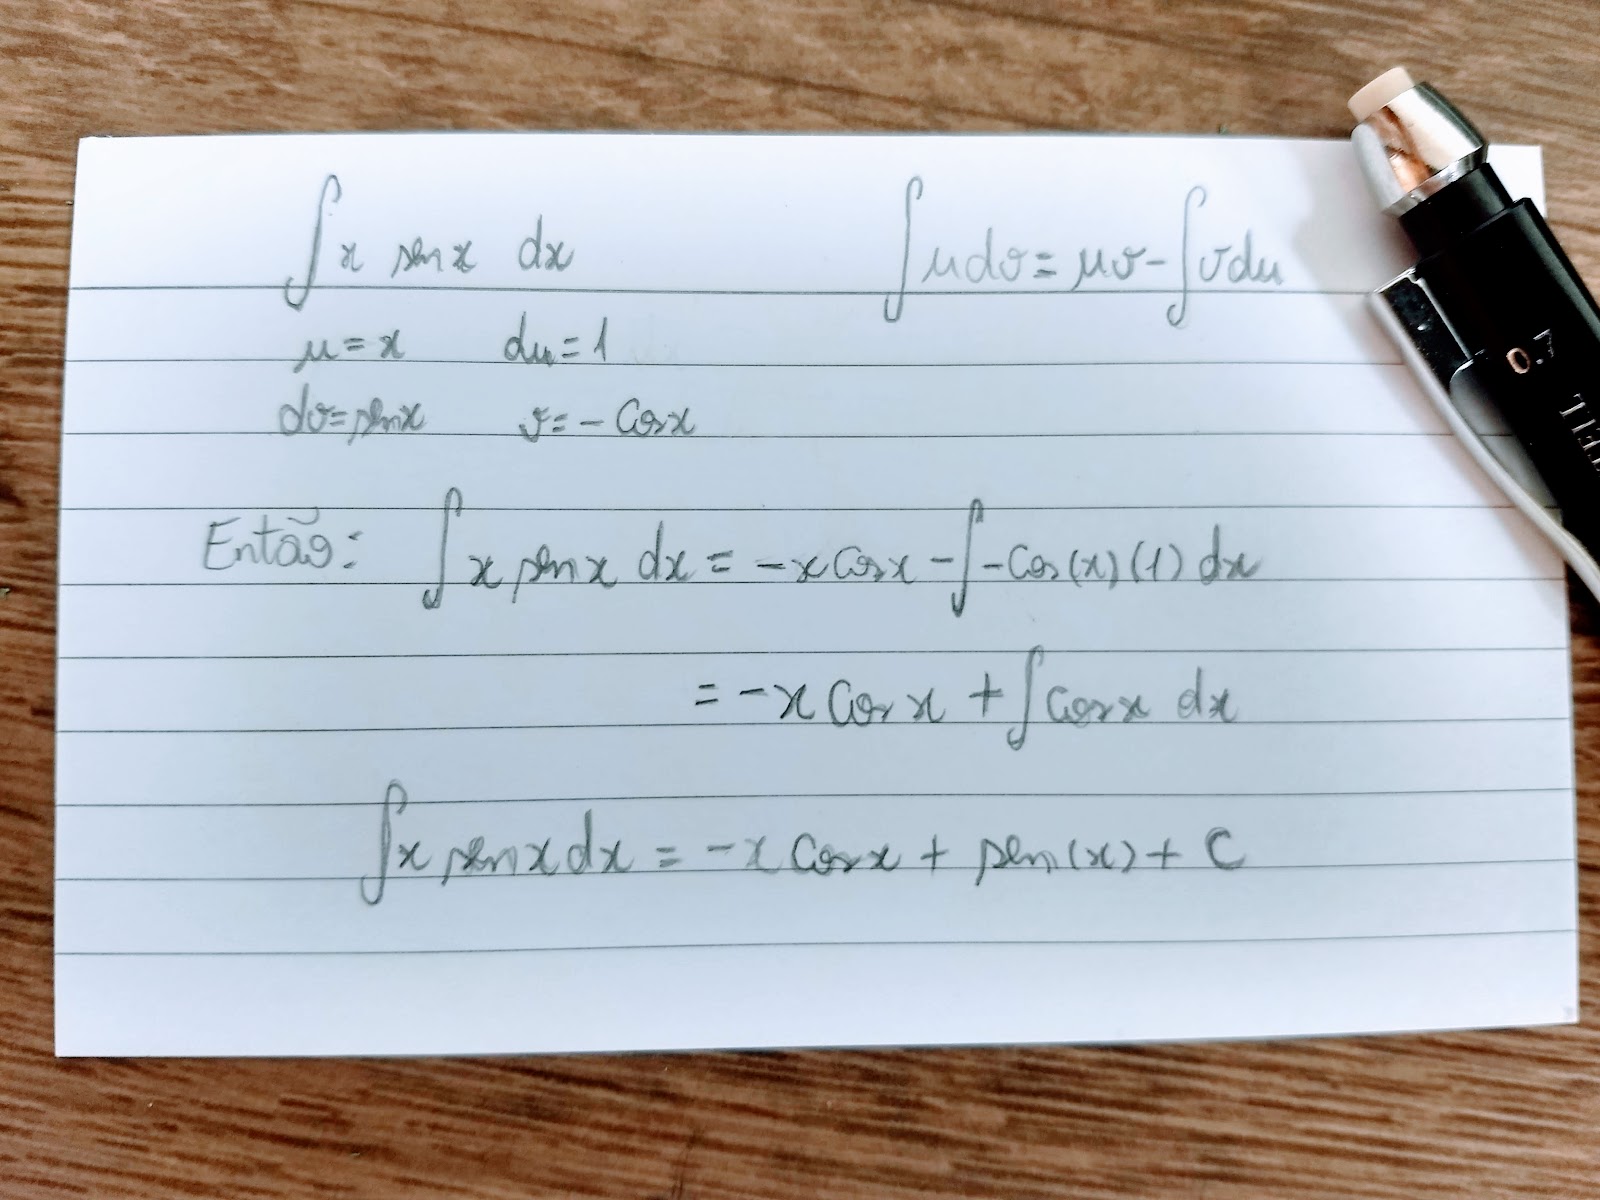 ∫ x sen x dx    ∫ u dv = uv - ∫ v du
u = x    du = 1
dv = sen x    v = - Cos x
Então: ∫ x sen x dx = - x Cos x - ∫ - Cos (x) (1) dx
= - x Cos x + ∫ Cos x dx
∫ x sen x dx = - x Cos x + sen (x) + C
0.7